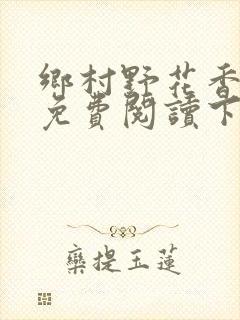 鄉村野花香
免費閱讀下
欒提玉蓮